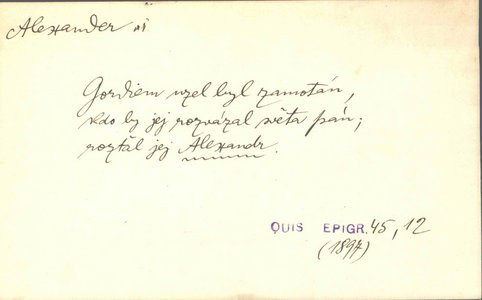 Alexander
Gordiem uzel byl zamotán,
kdo by jej rozvázal světa pán;
roztál jej Alexandr.
QUIS EPIGR. 45, 12
(1897)